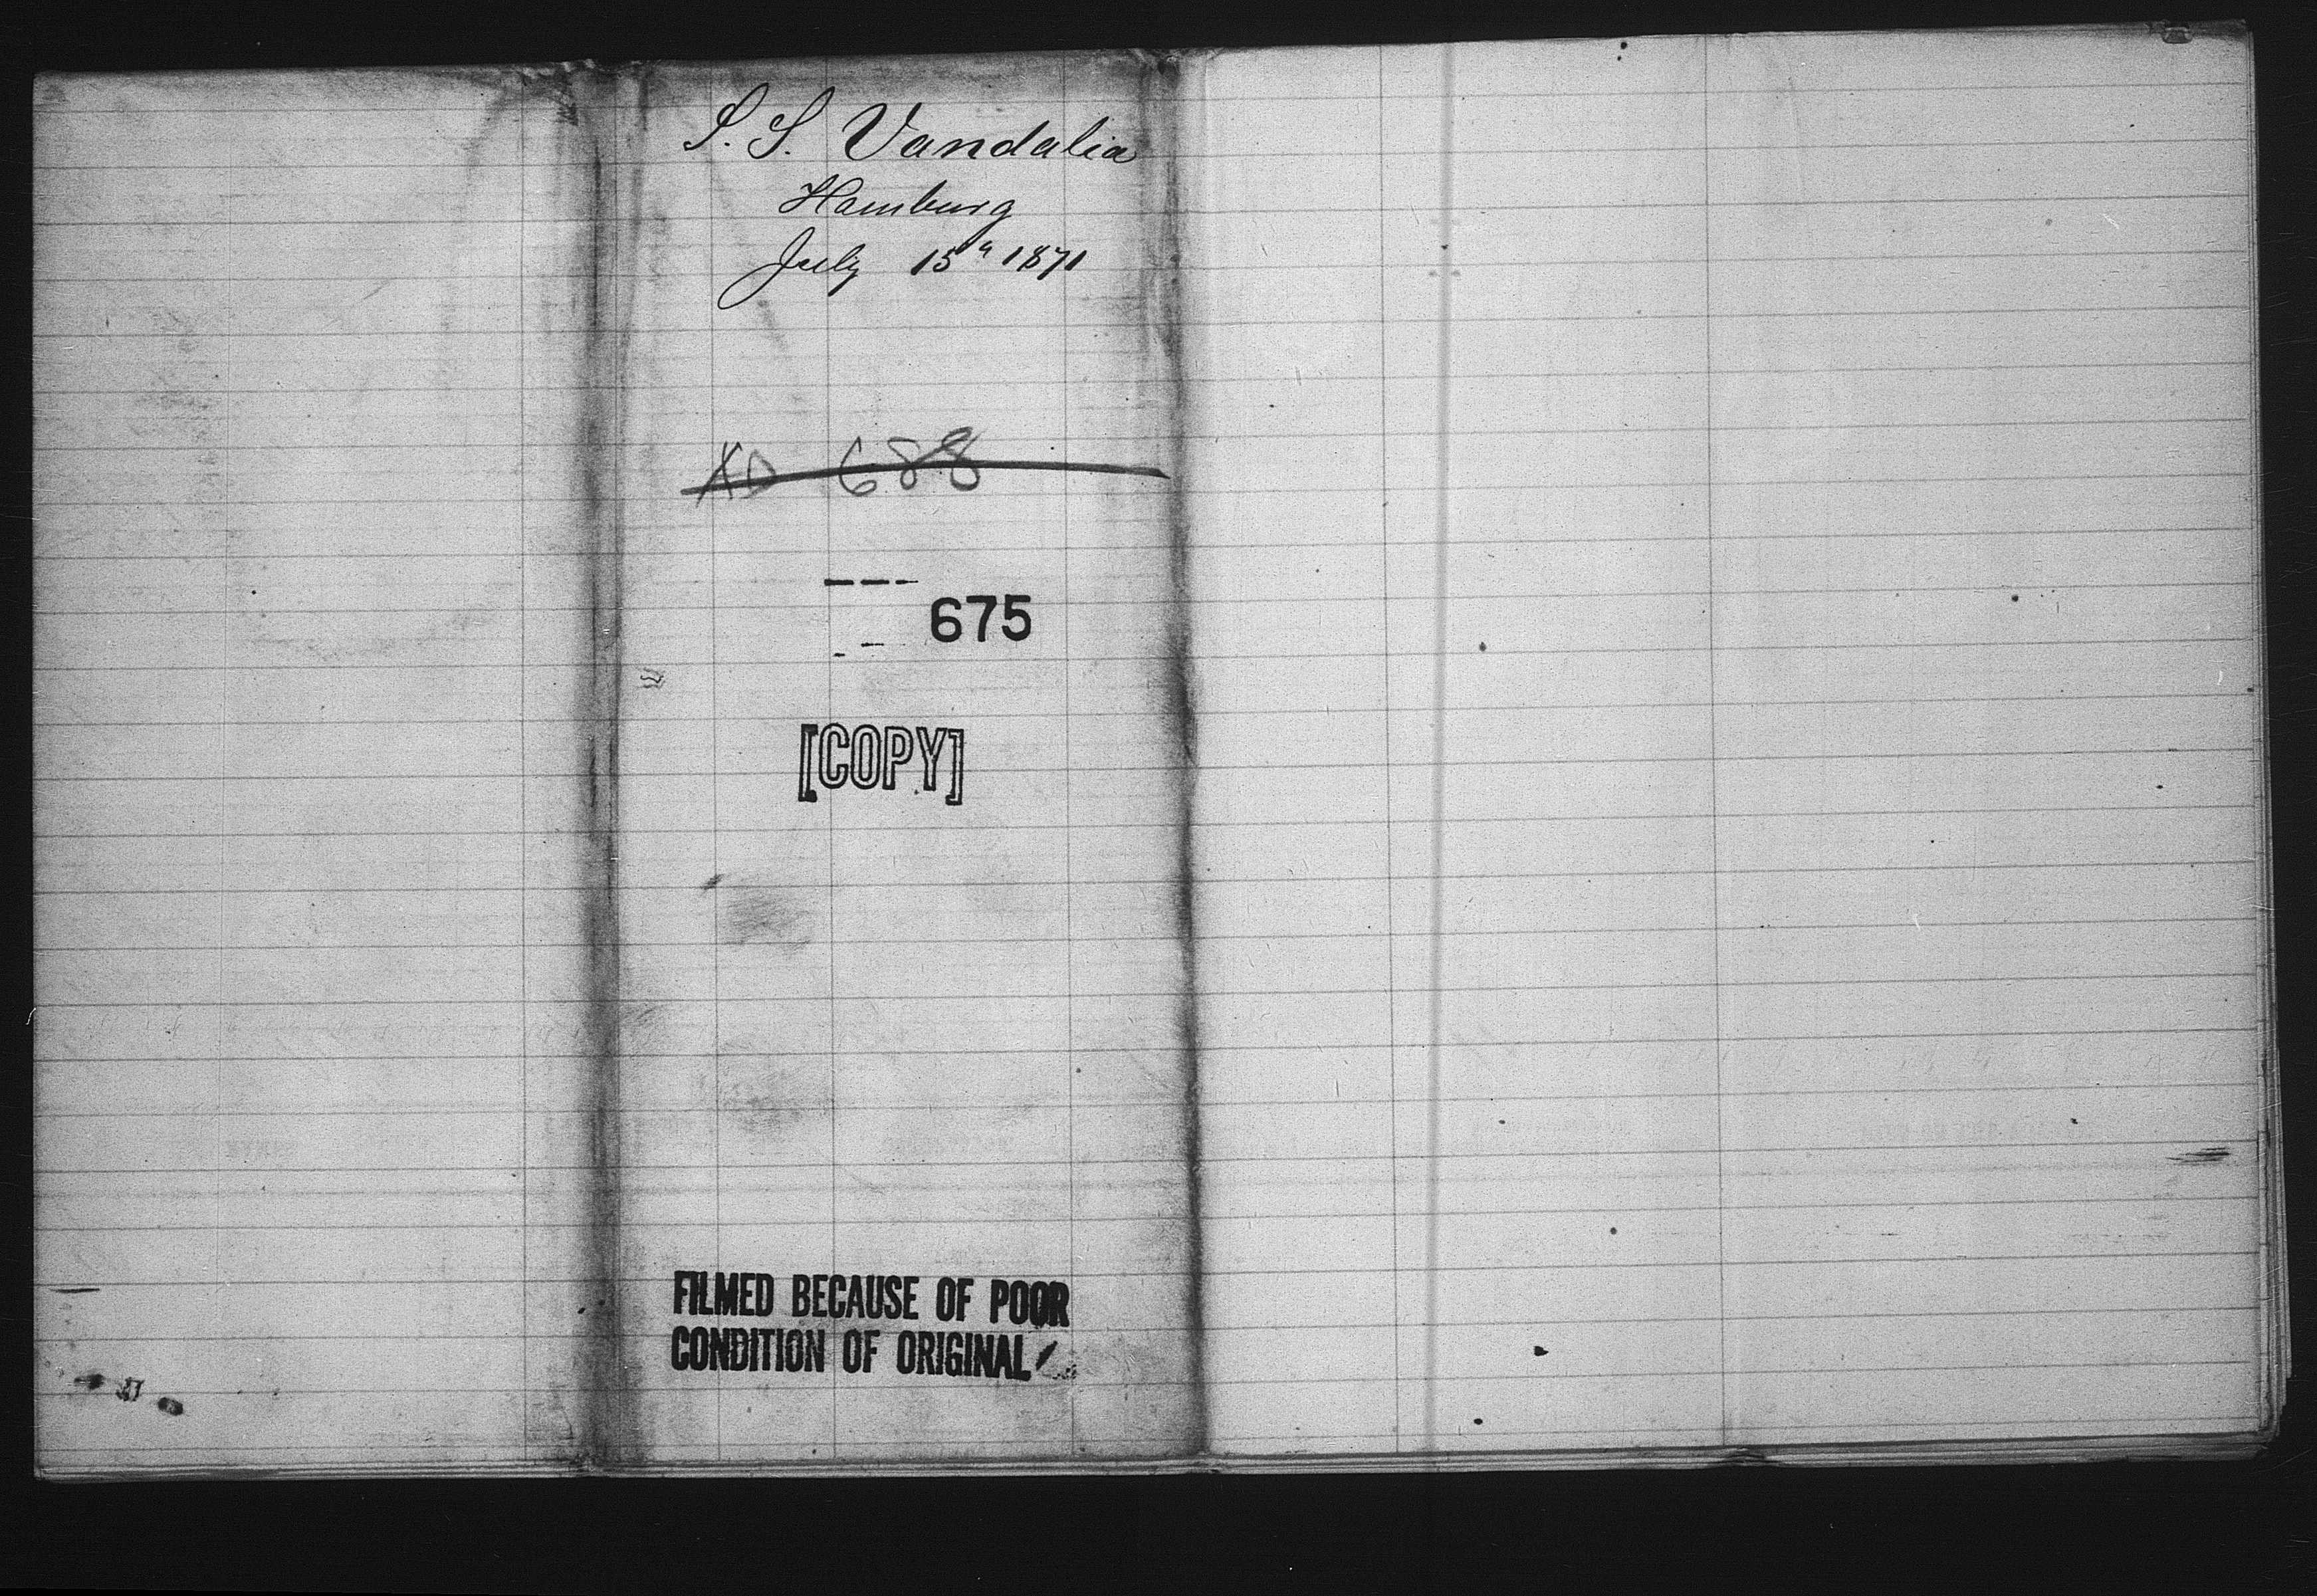 S. S. Vandalia
Hamburg
July 15th 1871
No 688
675
[COPY]
FILMED BECAUSE OF POOR
CONDITION OF ORIGINAL